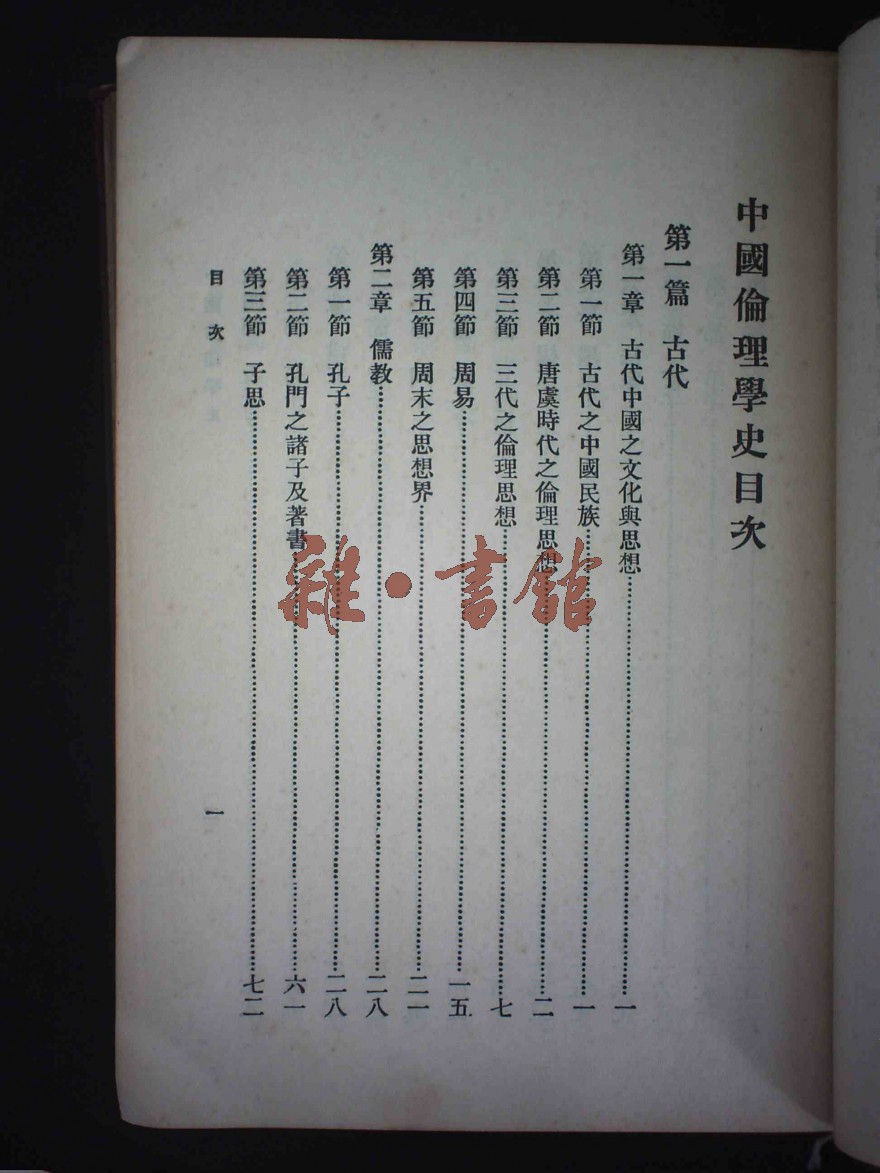 中國倫理學史目次
第一篇 古代
第一章 古代中國之文化與思想 一
第一節 古代之中國民族 一
第二節 唐虞時代之倫理思想 二
第三節 三代之倫理思想 七
第四節 周易 一五
第五節 周末之思想界 二一
第二章 儒教 二八
第一節 孔子 二八
第二節 孔門之諸子及著書 六一
第三節 子思 七二
目次 一
雜·書館